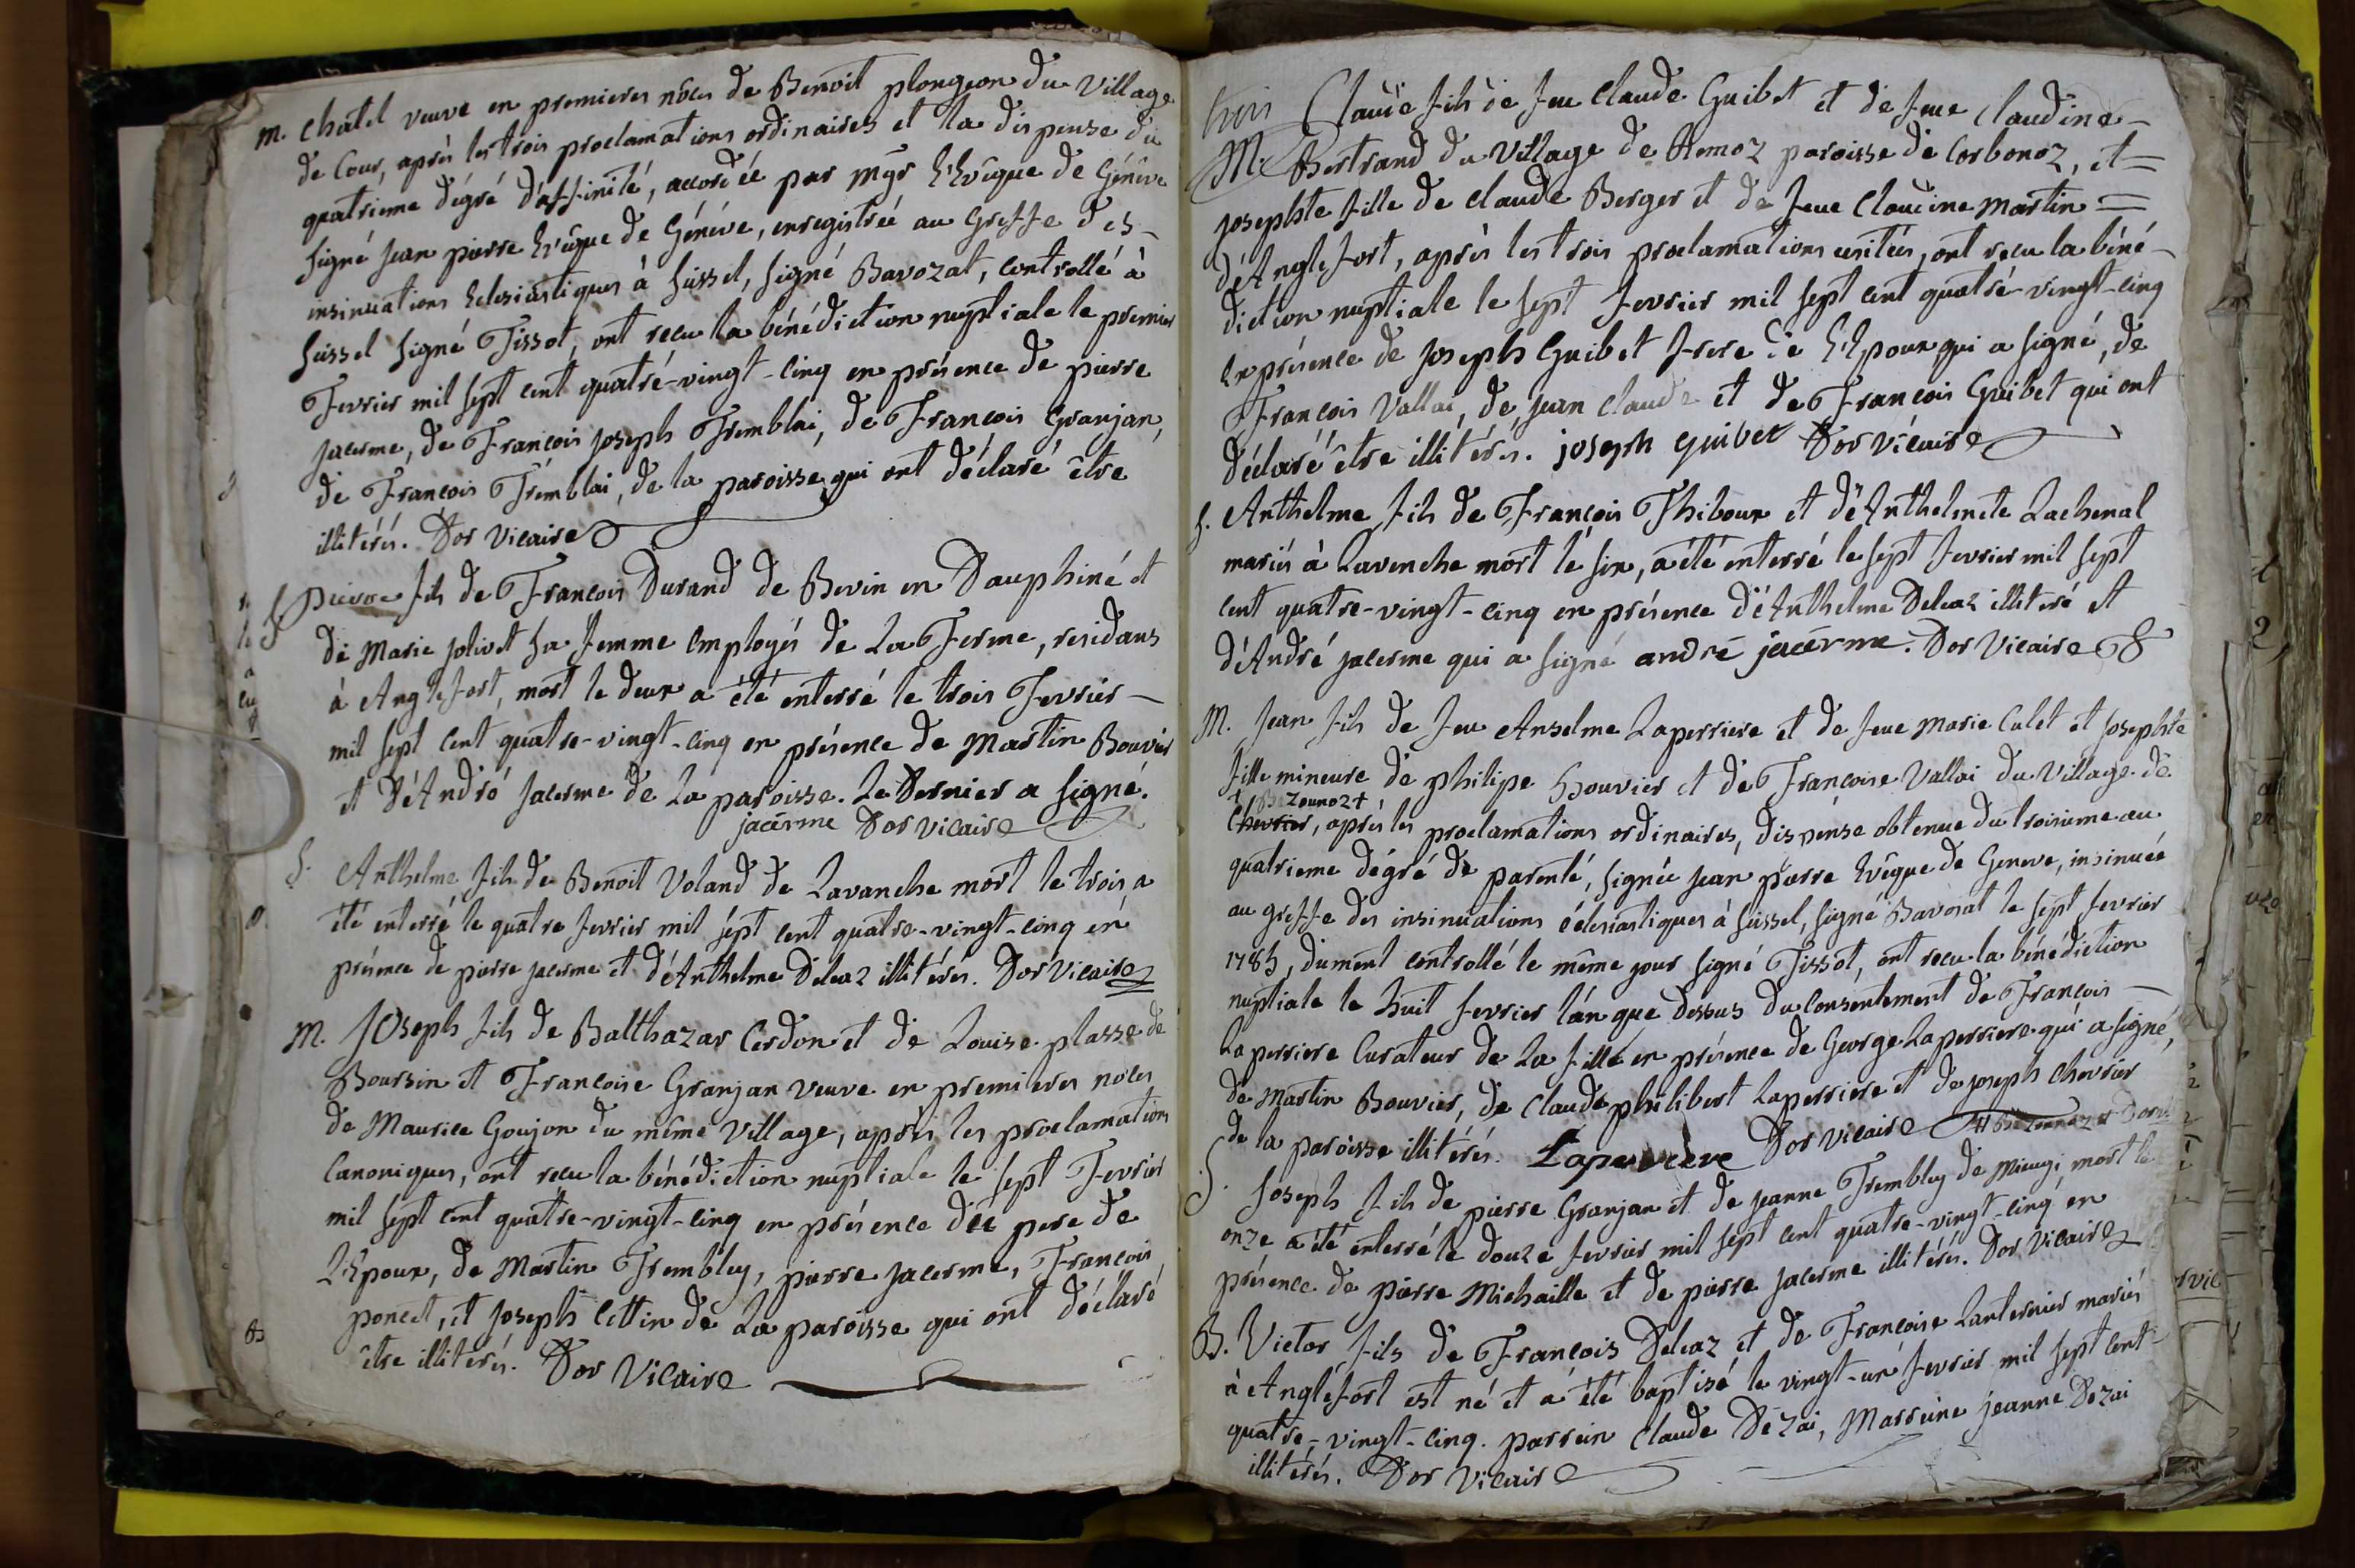 m. Chatel veuve en premieres nôces de Benoit plongeon du Village
de Cour, après les trois proclamations ordinaires et la dispense du
quatrieme dégré d'affinité, accordéé par Mgr L'Evêque de Généve
signé jean pierre Evêque de Généve, enregistrée au Greffe des -
insinuations Eclesiastiques à Seissel, signé Bavozat, controllé à
Seissel signé Tissot, ont recu la bénédiction nuptiale le premier
Fevrier mil sept cent quatré-vingt-cinq en présence de pierre
jacerme, de Francois joseph Tremblai, de Francois Granjan,
de Francois Tremblai, de la paroisse qui ont déclaré être
illitérés. Dor Vicaire
S pierre fils de Francois Durand de Bevin en Dauphiné et
de Marie jolivet sa femme Employés de La Ferme, residans
à Anglefort, mort le deux a été enterré le trois Fevrier -
mil sept cent quatre-vingt-cinq en présence de Martin Bouvier
et d'André jacerme de La paroisse. Le Dernier a signé.
jacerme Dor vicaire
S. Anthelme fils de Benoit Voland de Lavanche mort le trois a
été enterré le quatre fevrier mil sépt cent quatre-vingt-cinq en
présence de pierre jacerme et d'Anthelme Deleaz illitérés. Dor Vicaire
M. Joseph fils de Balthazar Cerdon et de Louise plasse de
Boursin et Francoise Granjan veuve en premieres noces
de Maurice Goujon du même Village, après les proclamations
Canoniques, ont recu la bénédiction nuptiale le sept Fevrier
mil sept cent quatre-vingt-cinq en présence du pere de
L'Epoux, de Martin Trembley, pierre jacerme, Francois
poncet, et joseph Cettin de La paroisse qui ont déclaré
être illiterés. Dor Vicaire
trois Claude fils de feu Claude Guibet et de feue Claudine -
M. Bertrand du Village de Remoz paroisse de Corbonoz, et =
josephte fille de Claude Berger et de feue Claudine Martin =
d'Anglefort, après les trois proclamations usitées, ont recu la béné-
diction nuptiale le sept fevrier mil sept cent quatré-vingt-cinq
En présence de joseph Guibet frere de L'Epoux qui a signé, de
François Vallai, de jean claude et de François Guibet qui ont
déclaré être illitérés. joseph guibet Dor vicaire
S. Anthelme fils de François Thiboux et d'Anthelmete Lachenal
mariés à Lavenche mort le six, a été enterré le sept fevrier mil sept
cent quatre-vingt-cinq en présence d'Anthelme Deleaz illiteré et
d'André jacerme qui a signé andré jacerme. Dor Vicaire
M. Jean fils de feu Anselme Laperriere et de feue Marie Culet et josephte
fille mineure de philipe Bouvier et de Francoise Vallai du Village de
+ Bezounoz +
Chevrier, après les proclamations ordinaires, dispense obtenue du troisieme au
quatrieme dégré de parenté, signée jean pierre Evêque de Geneve, insinuée
au greffe des insinuations éclesiastiques à Seissel, signé Bavozat le sept fevrier
1785, dument controllé le même jour signé Tissot, ont recu la bénédiction
nuptiale le huit fevrier l'an que dessus du consentement de Francois -
Laperriere Curateur de La fille en présence de George Laperriere qui a signé,
de Martin Bouvier, de Claude philibert Laperriere et de joseph Chevrier
de la paroisse illitérés. Laperriere Dor vicaire + Bezounoz + Dor
S. Joseph fils de pierre Granjan et de jeanne Trembley de Mieugi mort le
onze a été enterré le douze fevrier mil sept cent quatre-vingt-cinq en
présence de pierre Michaille et de pierre jacerme illitérés. Dor Vicaire
B. Victor fils de François Deleaz et de Francoise Lanternier mariés
à Anglefort est né et a été baptisé le vingt-un fevrier mil sept cent
quatre-vingt-cinq. parrein Claude Dezai, Marreine jeanne Dezai
illitérés. Dor Vicaire